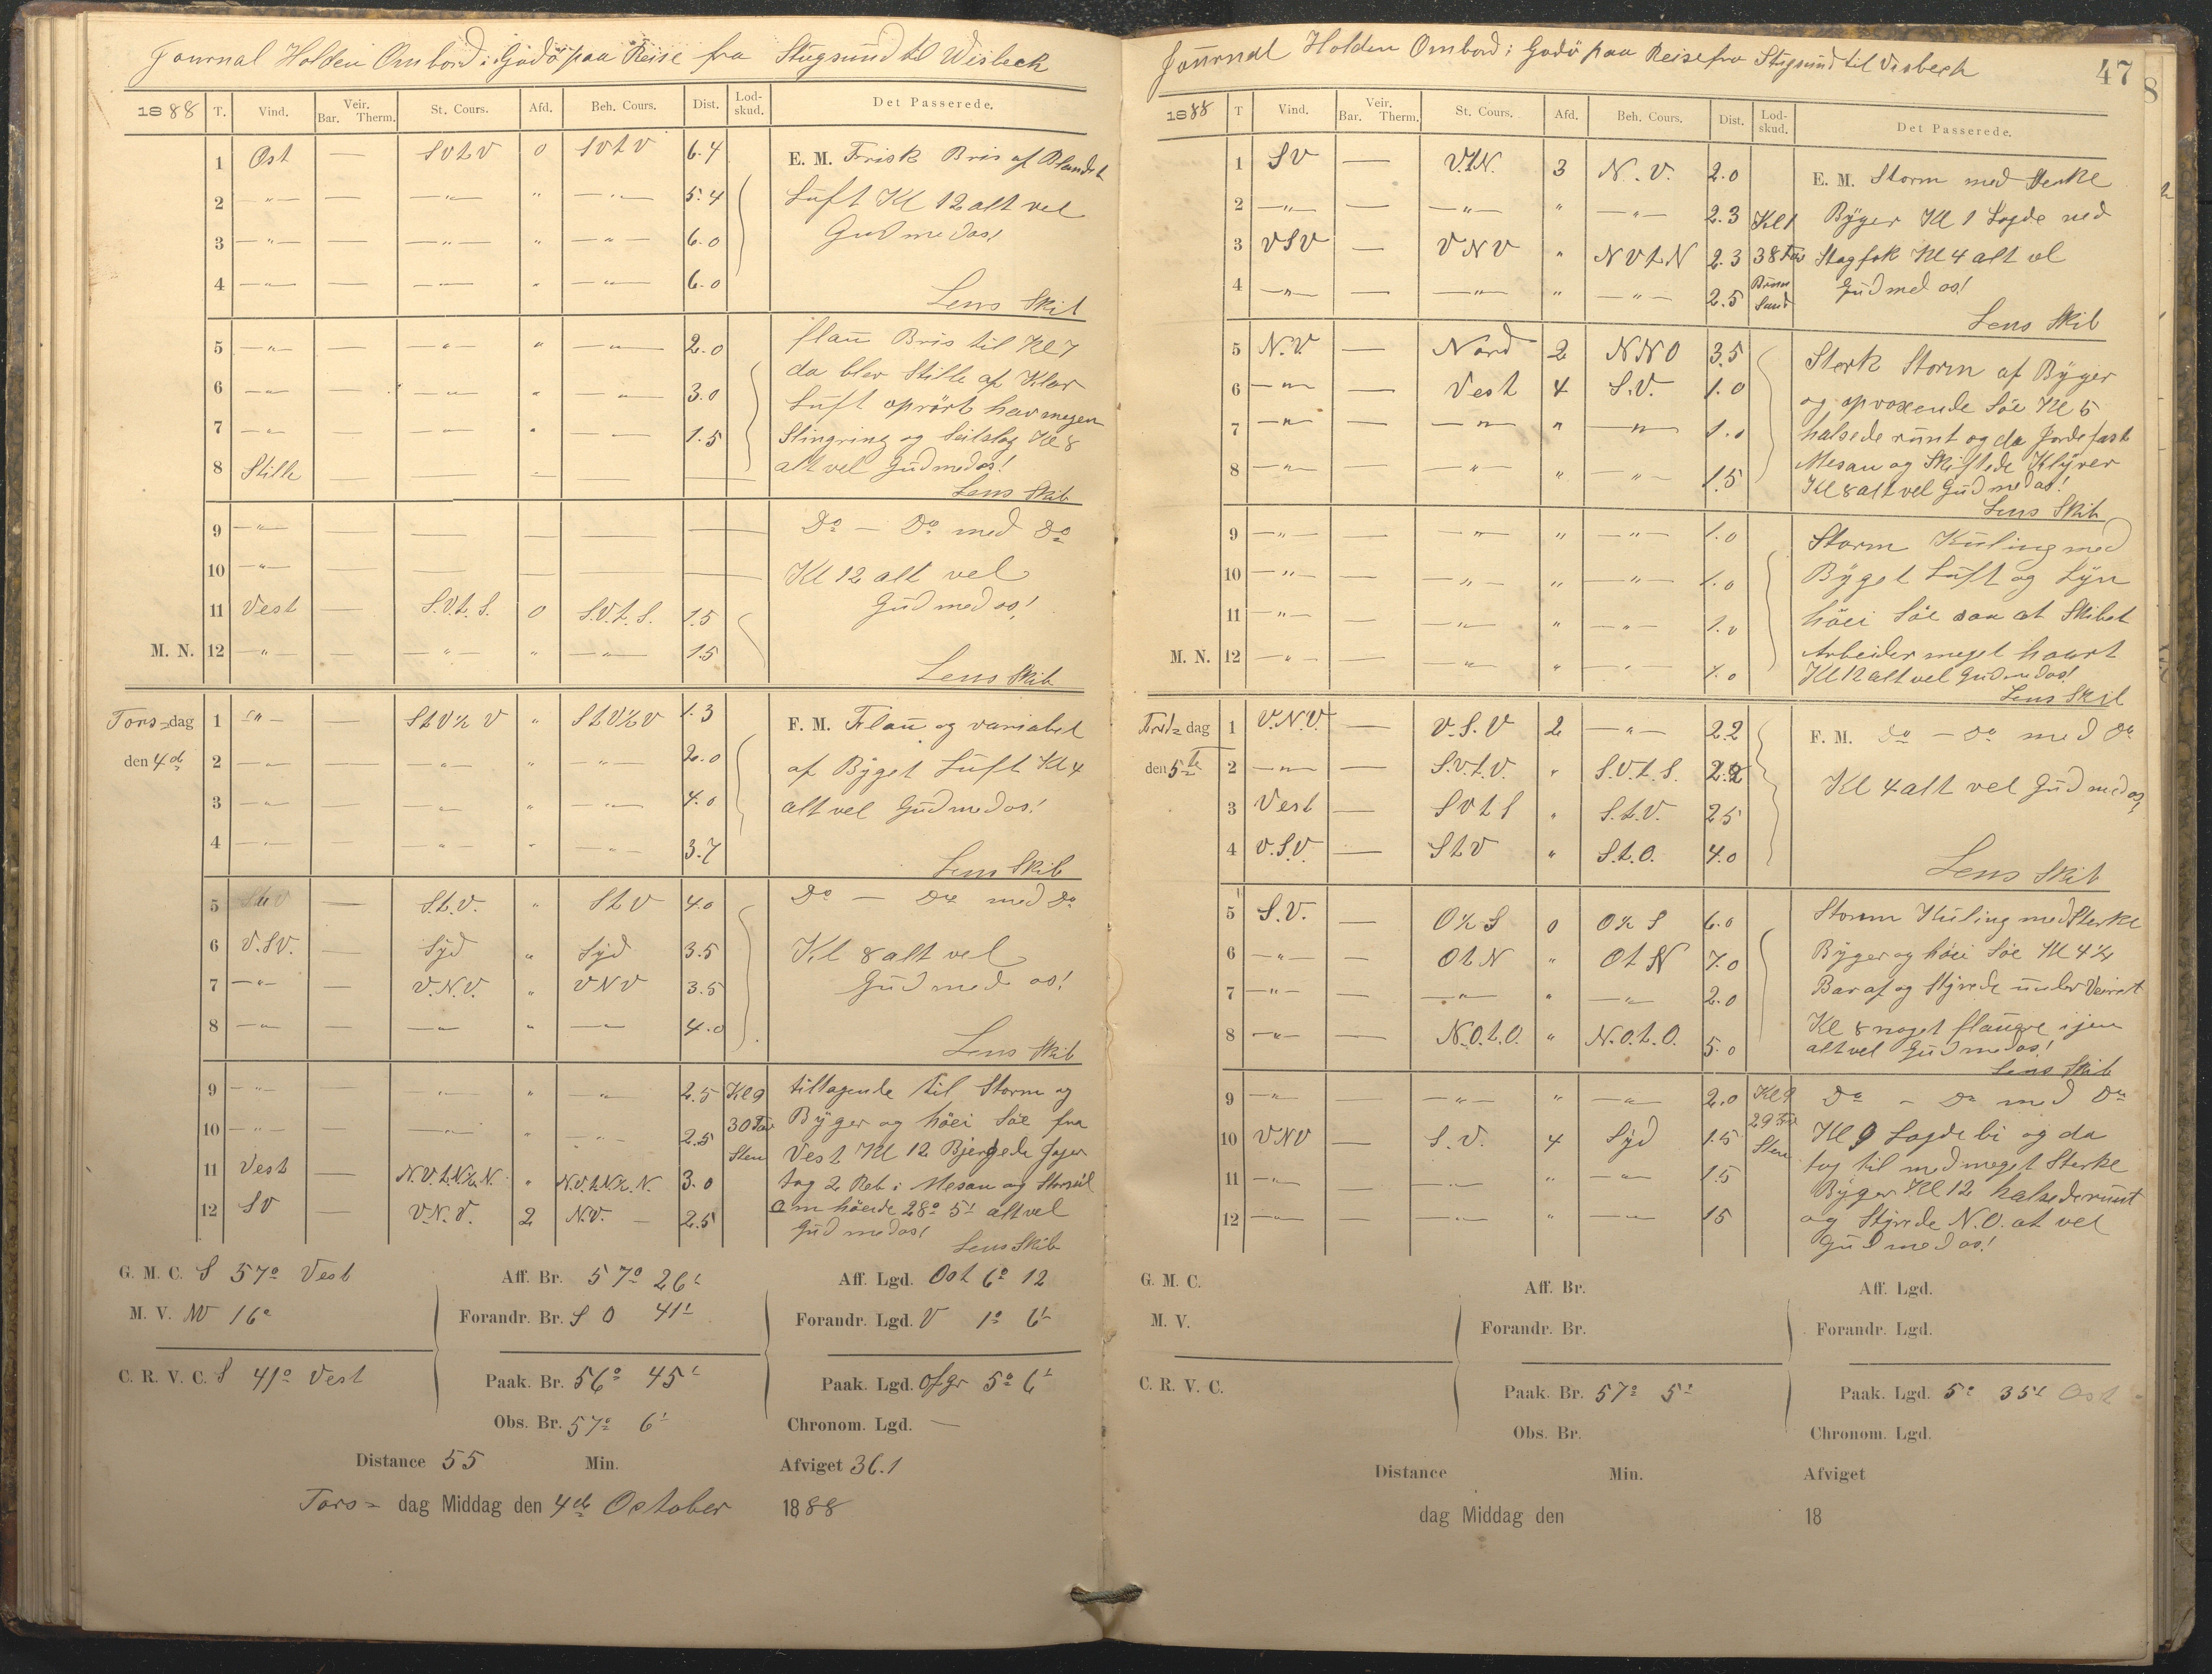 Journal Holden Ombord i Godö paa Reise fra Stugsund til Wisbeck
1888 T. Vind. Veir. Bar. Therm. St. Cours. Afd. Beh. Cours. Dist. Lod-skud. Det Passerede.
1 Ost — SVtV 0 SVtV 6.4 E. M. Frisk Bris af Blandet
2 —"— — —"— " —"— 5.4 Luft Kl 12 alt vel
3 —"— — —"— " —"— 6.0 Gud med os!
4 —"— — —"— " —"— 6.0
Lens Skib
5 —"— — —"— " —"— 2.0 flau Bris til Kl 7
6 —"— — —"— " —"— 3.0 da blev Stille af Klar
Luft oprört hav megen
7 —"— — —"— " —"— 1.5 Slingring og Seilslag Kl 8
8 Stille — — — alt vel Gud med os!
Lens Skib
9 —"— — — — — — Do — Do med Do
10 —"— — — — — — Kl 12 alt vel
11 Vest — S.V.t.S. 0 S.V.t.S. 1.5 Gud med os!
M. N. 12 —"— — —"— " —"— 1.5
Lens Skib
Tors=dag 1 —"— — StV½V " StV½V 1.3 F. M. Flau og variabel
den 4de 2 —"— — —"— " —"— 2.0 af Byget Luft Kl 4
3 —"— — —"— " —"— 4.0 alt vel Gud med os!
4 —"— — —"— " —"— 3.7
Lens Skib
5 — S.t.V. " StV 4.0 Do — Do med Do
6 V.SV. — Syd " Syd 3.5 Kl 8 alt vel
7 —"— — V.N.V. " VNV 3.5 Gud med os!
8 —"— — —"— " —"— 4.0
Lens Skib
9 —"— — —"— " —"— 2.5 Kl 9 tiltagende til Storm og
10 —"— — —"— " —"— 2.5 30 Fav Byger og höei Söe fra
Sten Vest Kl 12 Bjergede Jager
11 Vest — N.V.t.N½N. " N.V.t.N½.N. 3.0 tog 2 Reb i Mesan og Storseil
12 SV — V.N.V. 2 N.V. — 2.5 Om höeide 28° 5' alt vel
Gud med os!
Lens Skib
G. M. C. S 57° Vest Aff. Br. 57° 26' Aff. Lgd. Ost 6° 12
M. V. NV 16° Forandr. Br. S O 41' Forandr. Lgd. V 1° 6'
C. R. V. C. S 41° Vest Paak. Br. 56° 45' Paak. Lgd. Ofgr 5° 6'
Obs. Br. 57° 6' Chronom. Lgd. —
Distance 55 Min. Afviget 36.1
Tors= dag Middag den 4de October 1888
47
8
Journal Holden Ombord i Godö paa Reise fra Stugsund til Visbech
1888 T Vind. Veir. Bar. Therm. St. Cours. Afd. Beh. Cours. Dist. Lod-skud. Det Passerede.
1 SV — V.t.N. 3 N.V. 2.0 E. M. Storm med Sterke
2 —"— — —"— " —"— 2.3 Kl 1 Byger Kl 1 Lagde ned
3 VSV — VNV " NVtN 2.3 38 Fav Stagfok Kl 4 alt vel
4 —"— — —"— " —"— 2.5 Brun Sand Gud med os!
Lens Skib
5 N.V. — Nord 2 NNO 3.5 Sterk Storm af Byger
6 —"— — Vest 4 S.V. 1.0 og opvoxende Söe Kl 5
7 —"— — —"— " —"— 1.0 halsede runt og da Jorde fast
Mesan og Skiftede Klyver
8 —"— — —"— " —"— 1.5 Kl 8 alt vel Gud med os!
Lens Skib
9 —"— — —"— " —"— 1.0 Storm Kuling med
10 —"— — —"— " —"— 1.0 Byget Luft og Lyn
11 —"— — —"— " —"— 1.0 höei Söe saa at Skibet
Arbeider meget haart
M. N. 12 —"— — —"— " —"— 1.0 Kl 12 alt vel Gud med os!
Lens Skib
Fre=dag 1 V.N.V. — V.S.V 2 —"— 2.2 F. M. Do — Do med Do
den 5te 2 —"— — S.V.t.V. " S.V.t.S. 2.2 Kl 4 alt vel Gud med os!
3 Vest — SVtS " S.t.V. 2.5
4 V.S.V. — StV " S.t.O. 4.0
Lens Skib
5 S.V. — O½S 0 O½S 6.0 Storm Kuling med Sterke
6 —"— — OtN " OtN 7.0 Byger og höei Söe Kl 4½
7 —"— — —"— " —"— 2.0 Bar af og Styrede under Veiret
8 —"— — N.O.t.O. " N.O.t.O. 5.0 Kl 8 noget flaugre igen
alt vel Gud med os!
Lens Skib
9 —"— — —"— " —"— 2.0 Kl 9 Do — Do med Do
10 VNV — S.V. 4 Syd 1.5 29 Fav Sten Kl 9 Lagde bi og da
11 —"— — —"— " —"— 1.5 tog til med meget Sterke
Byger Kl 12 halsede runt
12 —"— — —"— " —"— 15 og Styrede N.O. at vel
Gud med os!
G. M. C. Aff. Br. Aff. Lgd.
M. V. Forandr. Br. Forandr. Lgd.
C. R. V. C. Paak. Br. 57° 5' Paak. Lgd. 5° 35' Ost
Obs. Br. Chronom. Lgd.
Distance Min. Afviget
dag Middag den 18